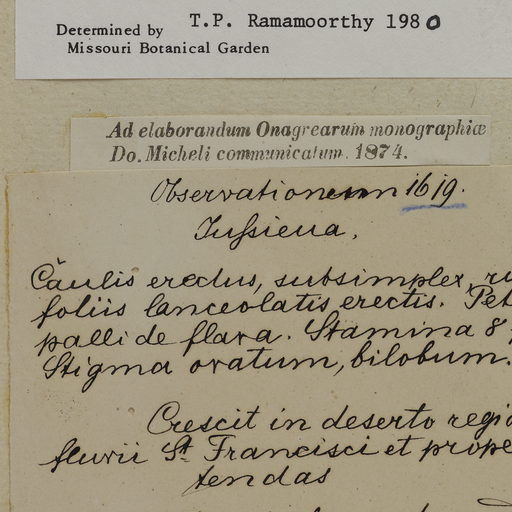 Determined by T.P. Ramamoorthy 1980
Missouri Botanical Garden
Ad elaborandum Onagrearum monographiæ
Do. Micheli communicatum. 1874.
Observationem 1619.
Jussieua,
Caulis erectus, subsimplex, ru
foliis lanceolatis erectis. Pet
pallide flava. Stamina 8
Stigma ovatum, bilobum.
Crescit in deserto regio
fluvii St. Francisci et prope
tendas